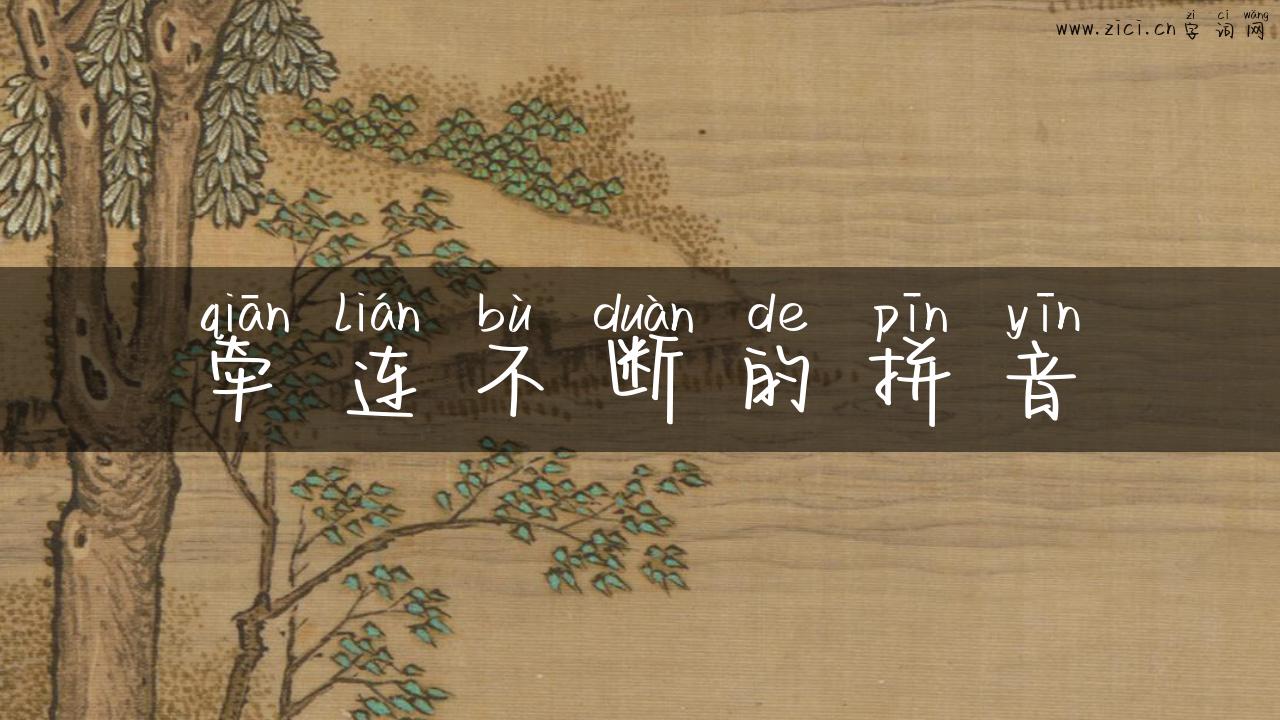 zì cí wǎng
www.zici.cn 字词网
qiān lián bù duàn de pīn yīn
牵连不断的拼音